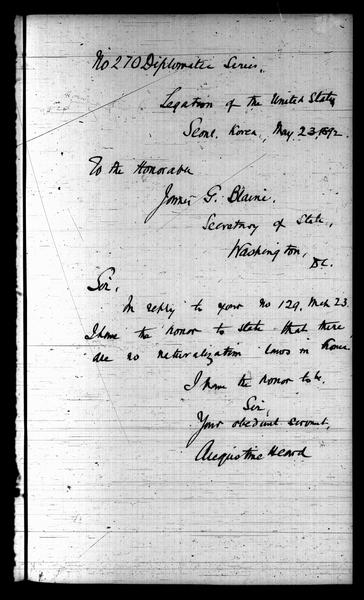 No 270 Diplomatic Series.
Legation of the United States
Seoul, Korea, May 23, 1892
To the Honorable
James G. Blaine,
Secretary of State,
Washington,
D.C.
Sir,
In reply to your No 129, Mch 23.
I have the honor to state that there
are no naturalization laws in Korea.
I have the honor to be,
Sir,
Your obedient servant,
Augustine Heard